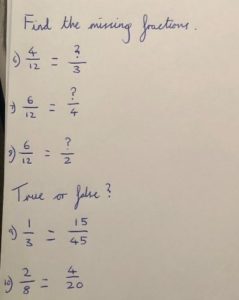 Find the missing fractions.
6) 4/12 = ?/3
7) 6/12 = ?/4
8) 6/12 = ?/2
True or false?
9) 1/3 = 15/45
10) 2/8 = 4/20